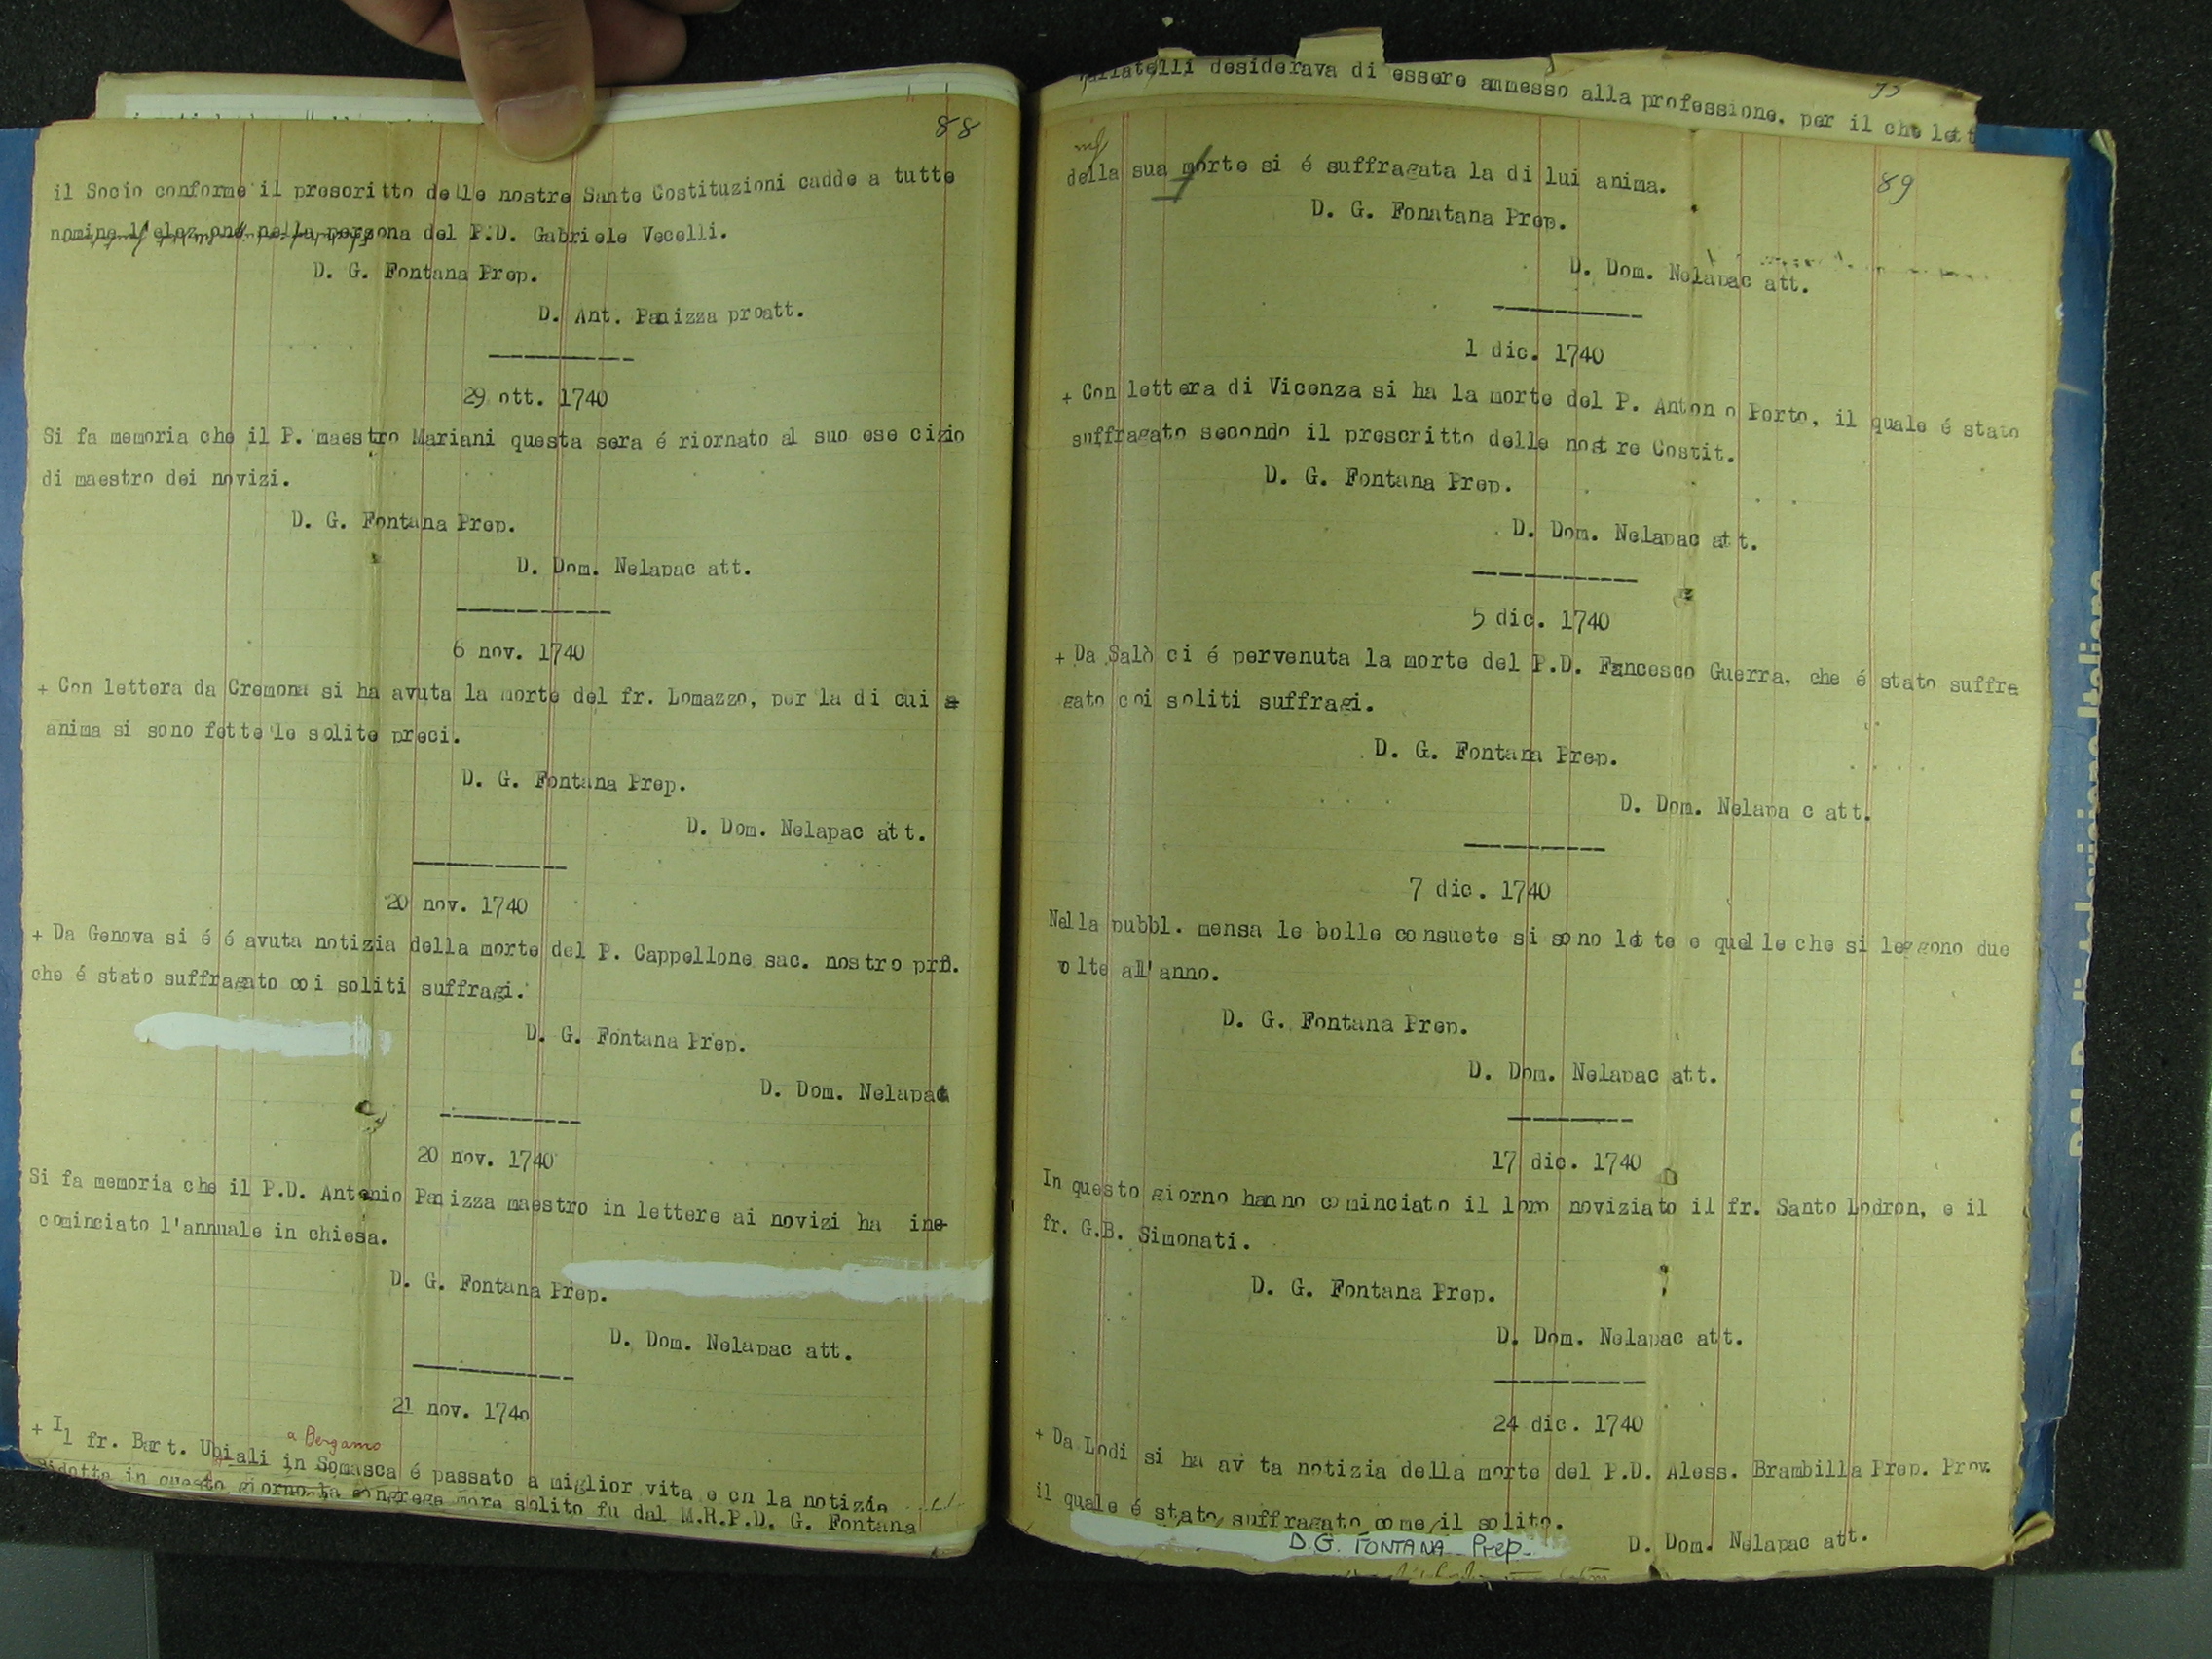 88
il Socio conforme il prescritto delle nostre Sante Costituzioni cadde a tutte
nomine l'elez one nella persona del P.D. Gabriele Vecelli.
D. G. Fontana Prep.
D. Ant. Panizza proatt.
29 ott. 1740
Si fa memoria che il P. maestro Mariani questa sera é riornato al suo ese cizio
di maestro dei novizi.
D. G. Fontana Prep.
D. Dom. Nelapac att.
6 nov. 1740
+ Con lettera da Cremona si ha avuta la morte del fr. Lomazzo, per la di cui a
anima si sono fette le solite preci.
D. G. Fontana Prep.
D. Dom. Nelapac att.
20 nov. 1740
+ Da Genova si é é avuta notizia della morte del P. Cappellone sac. nostro prf.
che é stato suffragato coi soliti suffragi.
D. G. Fontana Prep.
D. Dom. Nelapac
20 nov. 1740
Si fa memoria che il P.D. Antonio Panizza maestro in lettere ai novizi ha in
cominciato l'annuale in chiesa.
D. G. Fontana Prep.
D. Dom. Nelapac att.
21 nov. 1740
a Bergamo
+ Il fr. Bart. Ubiali in Somasca é passato a miglior vita e cn la notizia
Ridotta in questo giorno la congrega more solito fu dal M.R.P.D. G. Fontana
desiderava di essere ammesso alla professione. per il che lett
89
della sua morte si é suffragata la di lui anima.
D. G. Fonatana Prep.
D. Dom. Nelapac att.
1 dic. 1740
+ Con lettera di Vicenza si ha la morte del P. Anton o Porto, il quale é stato
suffragato secondo il prescritto delle nostre Costit.
D. G. Fontana Prep.
D. Dom. Nelapac att.
5 dic. 1740
+ Da Salò ci é pervenuta la morte del P.D. Francesco Guerra, che é stato suffra
gato coi soliti suffragi.
D. G. Fontana Prep.
D. Dom. Nelapa c att.
7 dic. 1740
Nella pubbl. mensa le bolle consuete si sono lette e quelle che si leggono due
volte all'anno.
D. G. Fontana Prep.
D. Dom. Nelapac att.
17 dic. 1740
In questo giorno hanno cominciato il loro noviziato il fr. Santo Lodron, e il
fr. G.B. Simonati.
D. G. Fontana Prep.
D. Dom. Nelapac att.
24 dic. 1740
+ Da Lodi si ha av ta notizia della morte del P.D. Aless. Brambilla Prep. Prov.
il quale é stato suffragato come il solito.
D. G. FONTANA Prep.
D. Dom. Nelapac att.